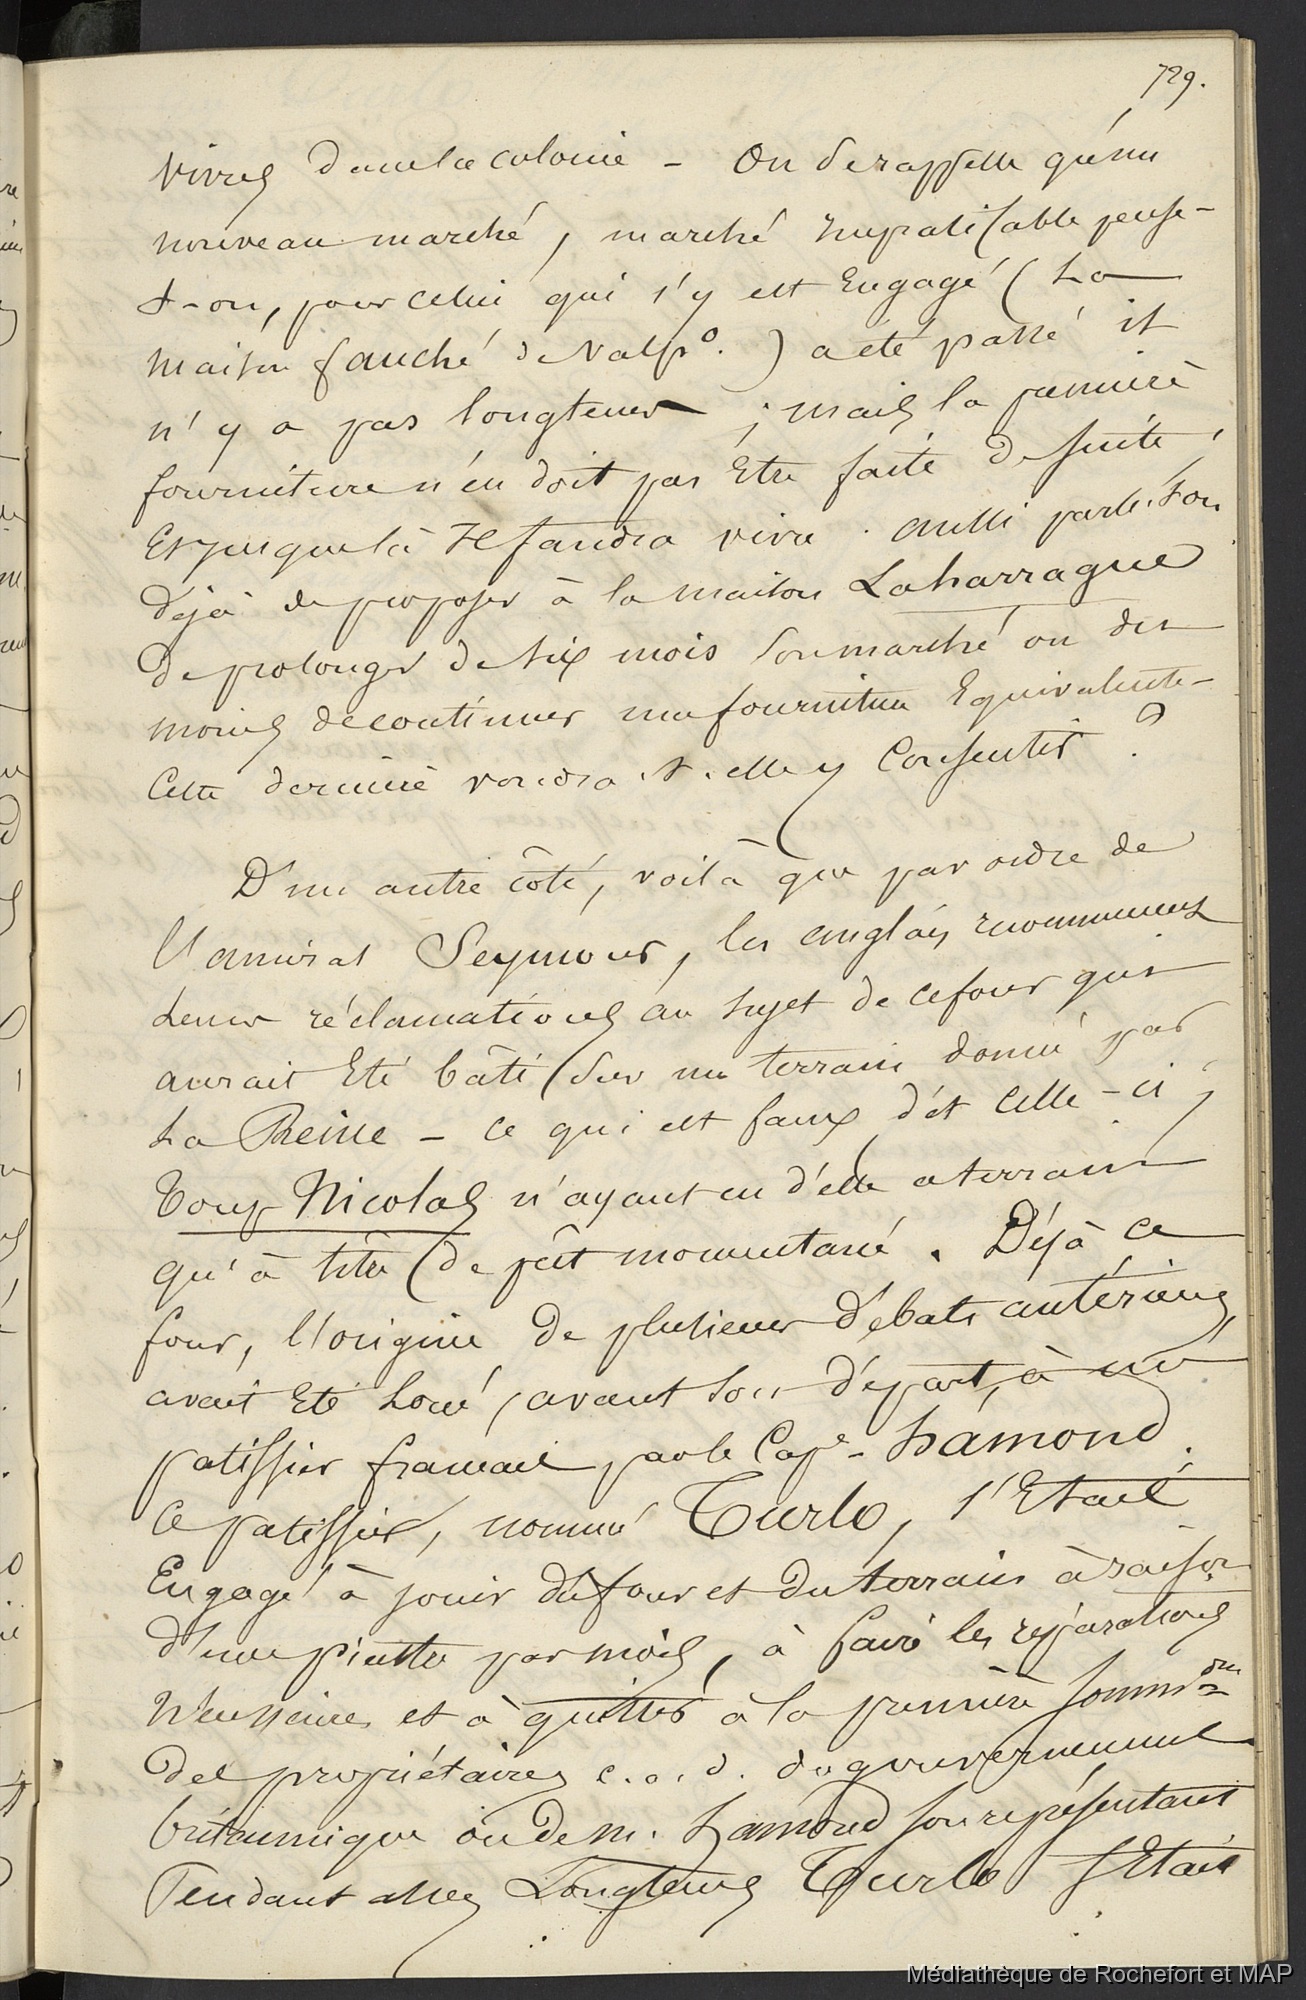 729.
vivres dans la colonie – On se rappelle qu'un
nouveau marché, marché impratisable pense-
t-on, pour celui qui s'y est Engagé (La
maison fauché de Valp°.) a été passé il
n'y a pas longtems ; mais la première
fourniture n'en doit pas Être faite de suite,
Et jusque là Il faudra vivre. aussi parle-t-on
déjà de proposer à la maison Laharrague
de prolonger de six mois son marché ou du
moins de continuer une fourniture Equivalente –
Cette dernière voudra-t-elle y Consentir ?
D'un autre côté, voilà que par ordre de
l'amiral Seymour, les anglais recommencent
Leurs réclamations au sujet de ce four qui
aurait Eté bâti sur un terrain donné par
La Reine – ce qui est faux, dit celle-ci,
Tous Nicolas n'ayant eu d'elle ce terrain
qu'à titre de prêt momentané. Déjà ce
four, l'origine de plusieurs débats antérieurs,
avait Eté Loué, avant son départ, à un
patissier français par le Cape. Hamond.
Ce patissier, nommé Turlo, s'Etait
Engagé à jouir du four et du terrain à raison
d'une piastre par mois, à faire les réparations
nécessaires et à quitter à la première somm.on
des propriétaires c.a.d. du gouvernement
britannique ou de m. Hamond son représentant
Pendant assez Longtems Turlo s'Etait
Médiathèque de Rochefort et MAP